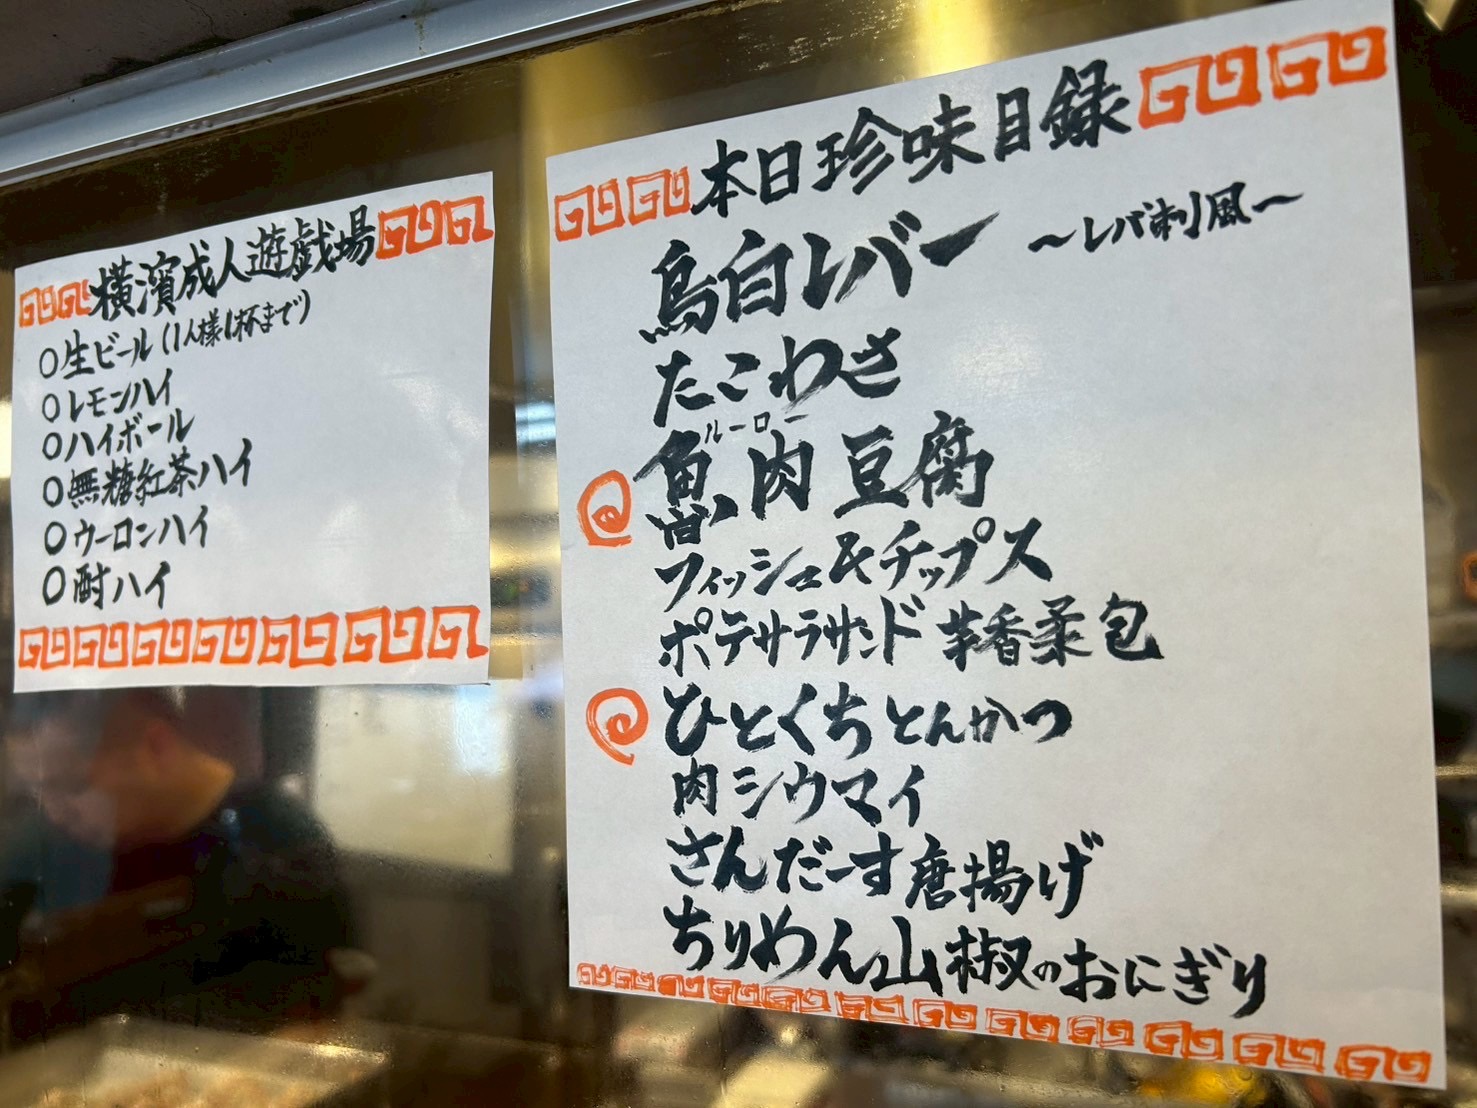 横濱成人遊戯場
○生ビール(1人様1杯まで)
○レモンハイ
○ハイボール
○無糖紅茶ハイ
○ウーロンハイ
○酎ハイ
本日珍味目録
鳥白レバー 〜レバ刺し風〜
たこわさ
ルーロー
魯肉豆腐
フィッシュ&チップス
ポテサラサンド 芋香柔包
ひとくちとんかつ
肉シウマイ
さんだーす唐揚げ
ちりめん山椒のおにぎり